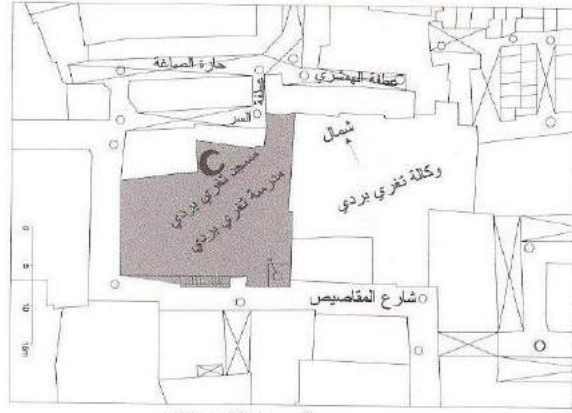 حارة الصاغة
عطفة الهمشري
عطفة
السر
شمال
مسجد تغري بردي
مدرسة تغري بردي
وكالة تغري بردي
شارع المقاصيص